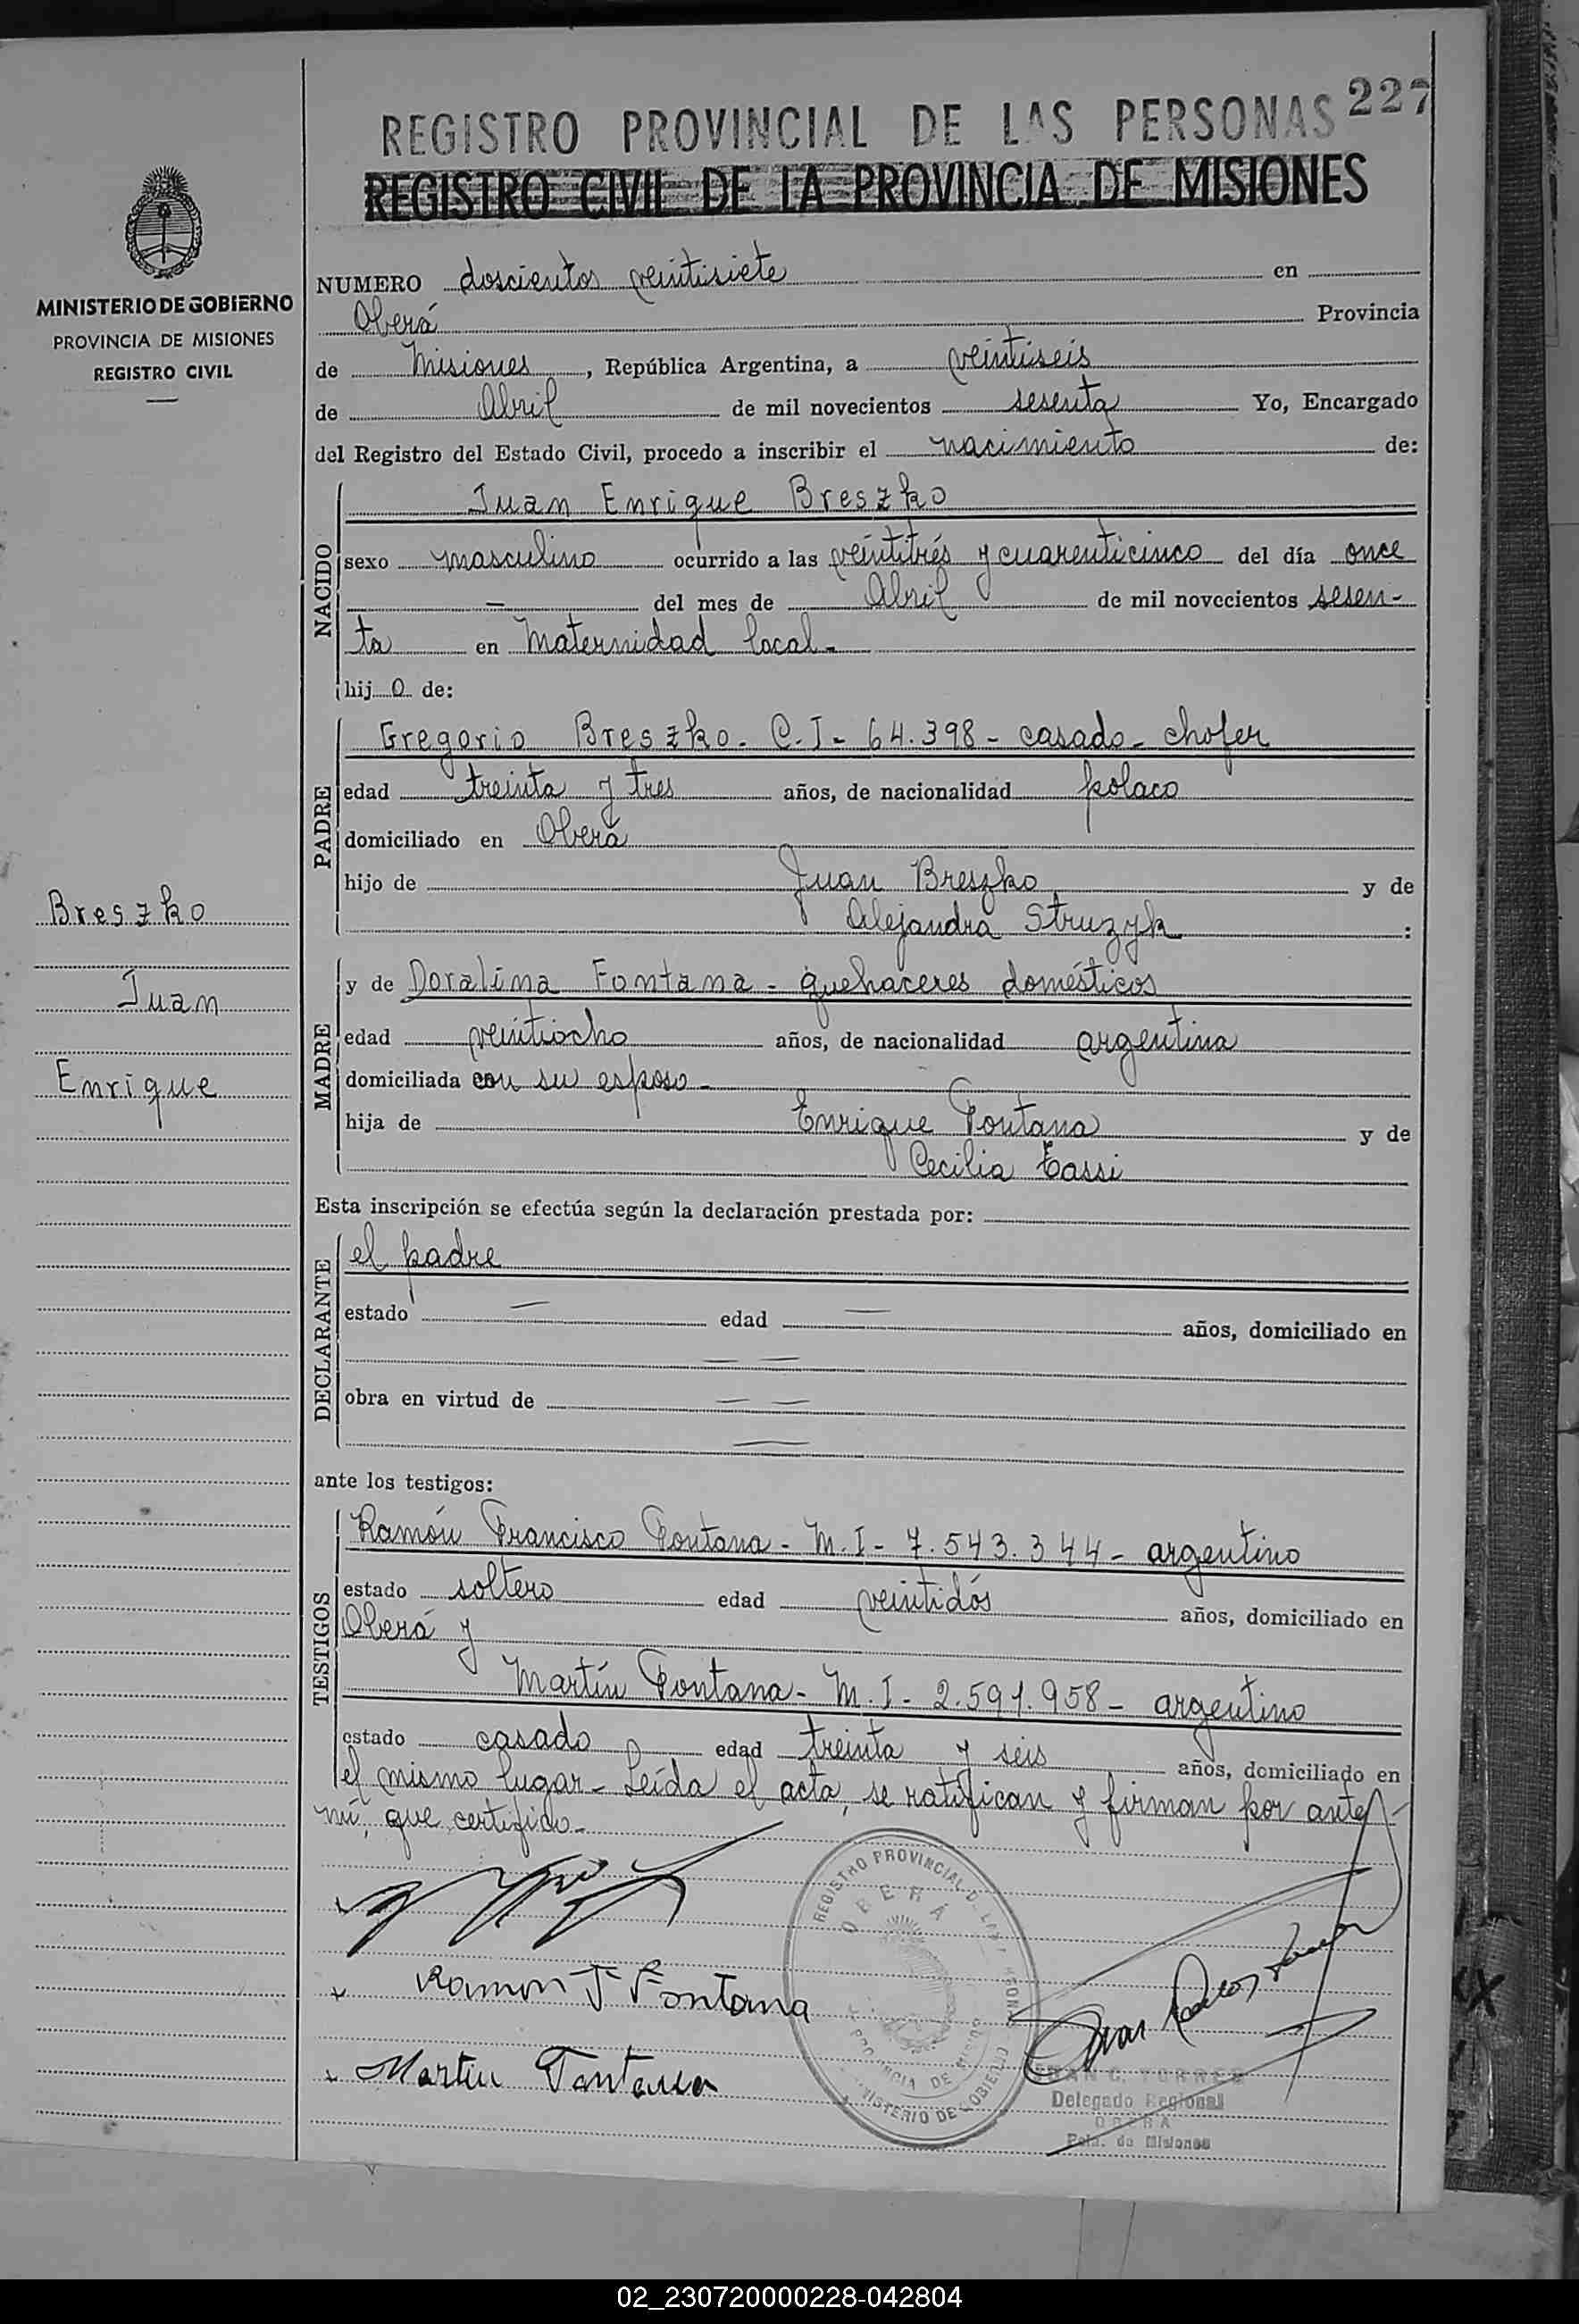 227
REGISTRO PROVINCIAL DE LAS PERSONAS
REGISTRO CIVIL DE LA PROVINCIA DE MISIONES
MINISTERIO DE GOBIERNO
PROVINCIA DE MISIONES
REGISTRO CIVIL
NUMERO doscientos veintisiete en
Oberá Provincia
de Misiones, República Argentina, a veintiseis
de Abril de mil novecientos sesenta Yo, Encargado
del Registro del Estado Civil, procedo a inscribir el nacimiento de:
NACIDO
Juan Enrique Breszko
sexo masculino ocurrido a las veintitrés y cuarenticinco del día once
— del mes de Abril de mil novecientos sesen-
ta en Maternidad local.-
hijo de:
PADRE
Gregorio Breszko. C.I- 64.398- casado- chofer
edad treinta y tres años, de nacionalidad polaco
domiciliado en Oberá
hijo de Juan Breszko y de
Alejandra Struzyk :
Breszko
Juan
Enrique
MADRE
y de Doralina Fontana - quehaceres domésticos
edad veintiocho años, de nacionalidad argentina
domiciliada con su esposo-
hija de Enrique Fontana y de
Cecilia Tassi
Esta inscripción se efectúa según la declaración prestada por:
DECLARANTE
el padre
estado — edad — años, domiciliado en
— —
obra en virtud de — —
—
ante los testigos:
TESTIGOS
Ramón Francisco Fontana- M.I- 7.543.344- argentino
estado soltero edad veintidós años, domiciliado en
Oberá y
Martín Fontana- M.I- 2.591.958- argentino
estado casado edad treinta y seis años, domiciliado en
el mismo lugar- Leída el acta, se ratifican y firman por ante
mí, que certifico.-
REGISTRO PROVINCIAL DE LAS PERSONAS
OBERÁ
PROVINCIA DE MISIONES
MINISTERIO DE GOBIERNO
Ramon F Fontana
Martin Fontana
JUAN C. TORRES
Delegado Regional
OBERA
Pcia. de Misiones
02_230720000228-042804